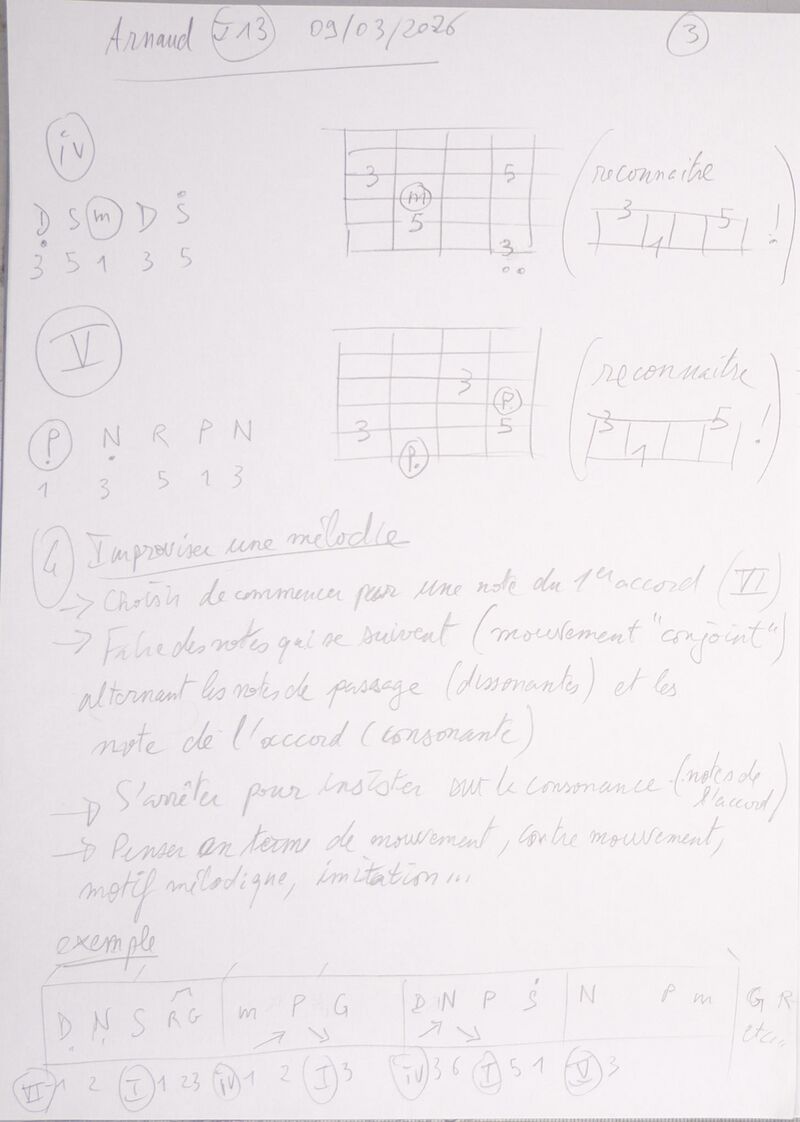 Arnaud V 13 09/03/2026 3
iv
3 5
m
5
3
(reconnaitre
3 5
1 !)
Ḍ S m D Ṡ
3 5 1 3 5
V
3
P
3 5
P.
(reconnaitre
3 5
1 !)
P̣ Ṇ R P N
1 3 5 1 3
4 Improviser une mélodie
→ Choisir de commencer par une note du 1er accord (VI)
→ Faire des notes qui se suivent (mouvement "conjoint")
alternant les notes de passage (dissonantes) et les
note de l'accord (consonante)
→ S'arrêter pour insister sur le consonance (notes de
l'accord)
→ Penser en terme de mouvement, contre mouvement,
motif mélodique, imitation...
exemple
Ḍ Ṇ S R G | m P G | D N P Ṡ | N P m | G R
etc..
VI 1 2 I 1 23 iv 1 2 I 3 iv 3 6 I 5 1 V 3